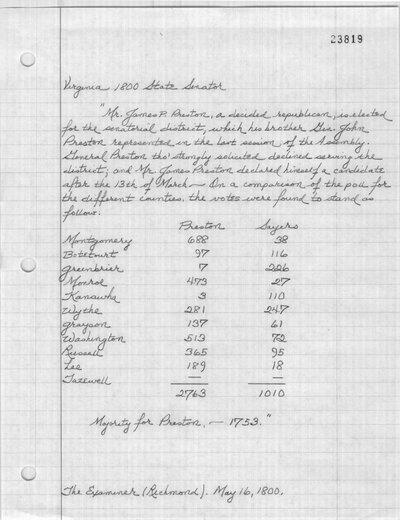 23819
Virginia 1800 State Senator
"Mr. James P. Preston, a decided republican, is elected
for the senatorial district, which his brother Gen. John
Preston represented in the last session of the Assembly.
General Preston tho' strongly solicited declined serving the
district; and Mr. James Preston declared himself a candidate
after the 13th of March — On a comparison of the poll for
the different counties, the votes were found to stand as
follow:
Preston Sayers
Montgomery 688 38
Botetourt 97 116
Greenbrier 7 226
Monroe 473 27
Kanawha 3 110
Wythe 281 247
Grayson 137 61
Washington 513 72
Russell 365 95
Lee 189 18
Tazewell — —
2763 1010
Majority for Preston, — 1753."
The Examiner (Richmond). May 16, 1800.